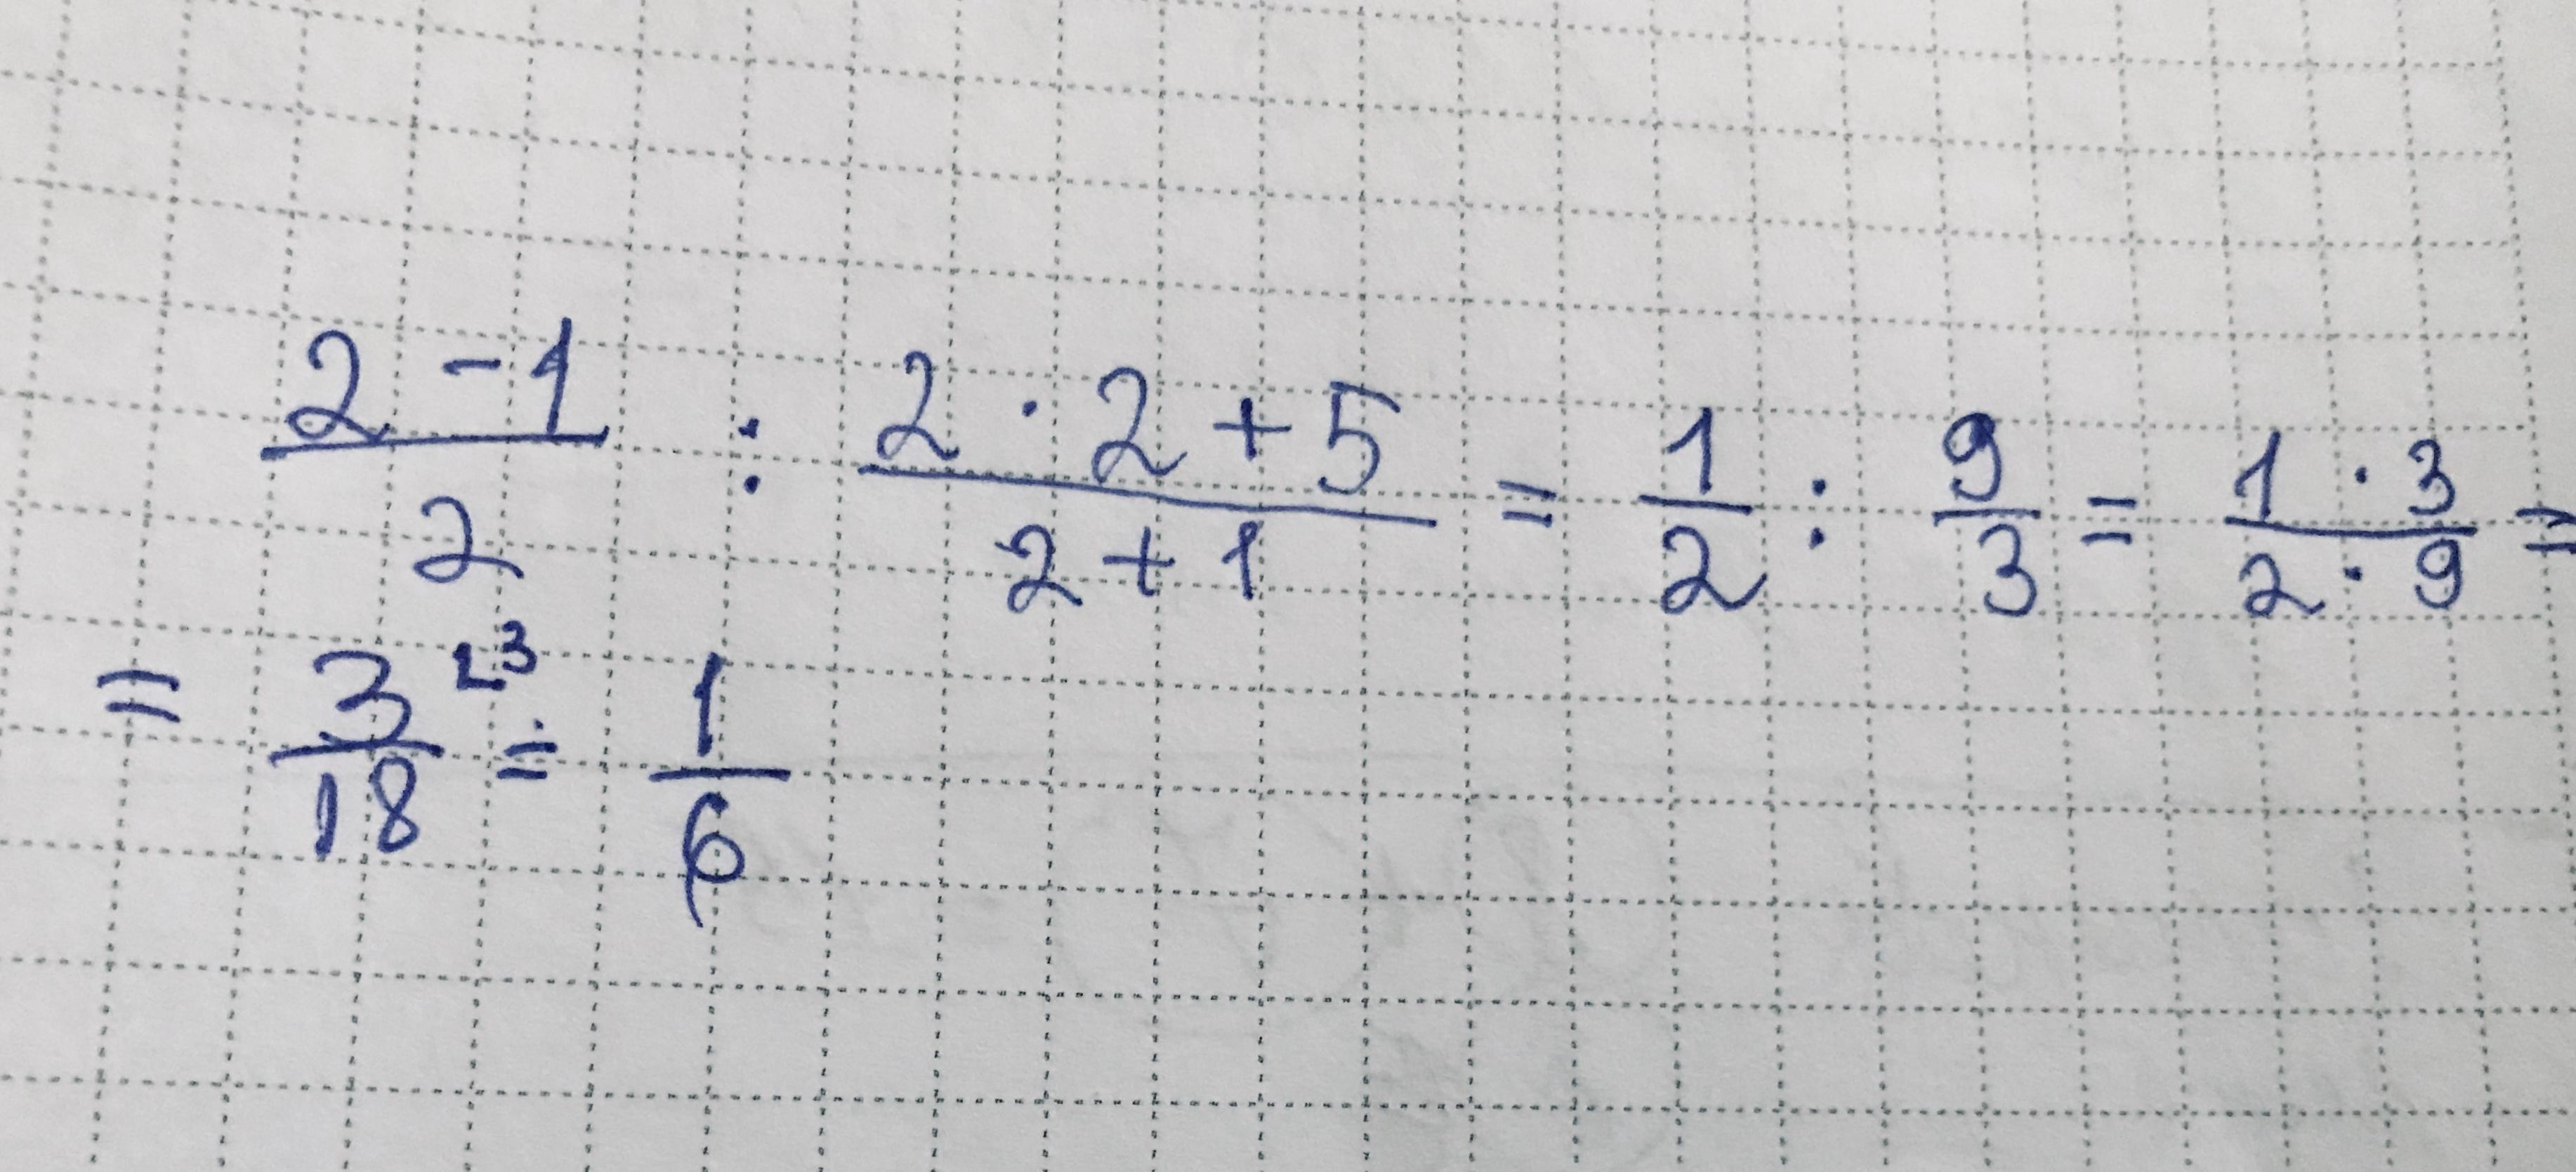 (2 - 1)/2 : (2 · 2 + 5)/(2 + 1) = 1/2 : 9/3 = (1 · 3)/(2 · 9) =
= 3/18 ^(L3) = 1/6